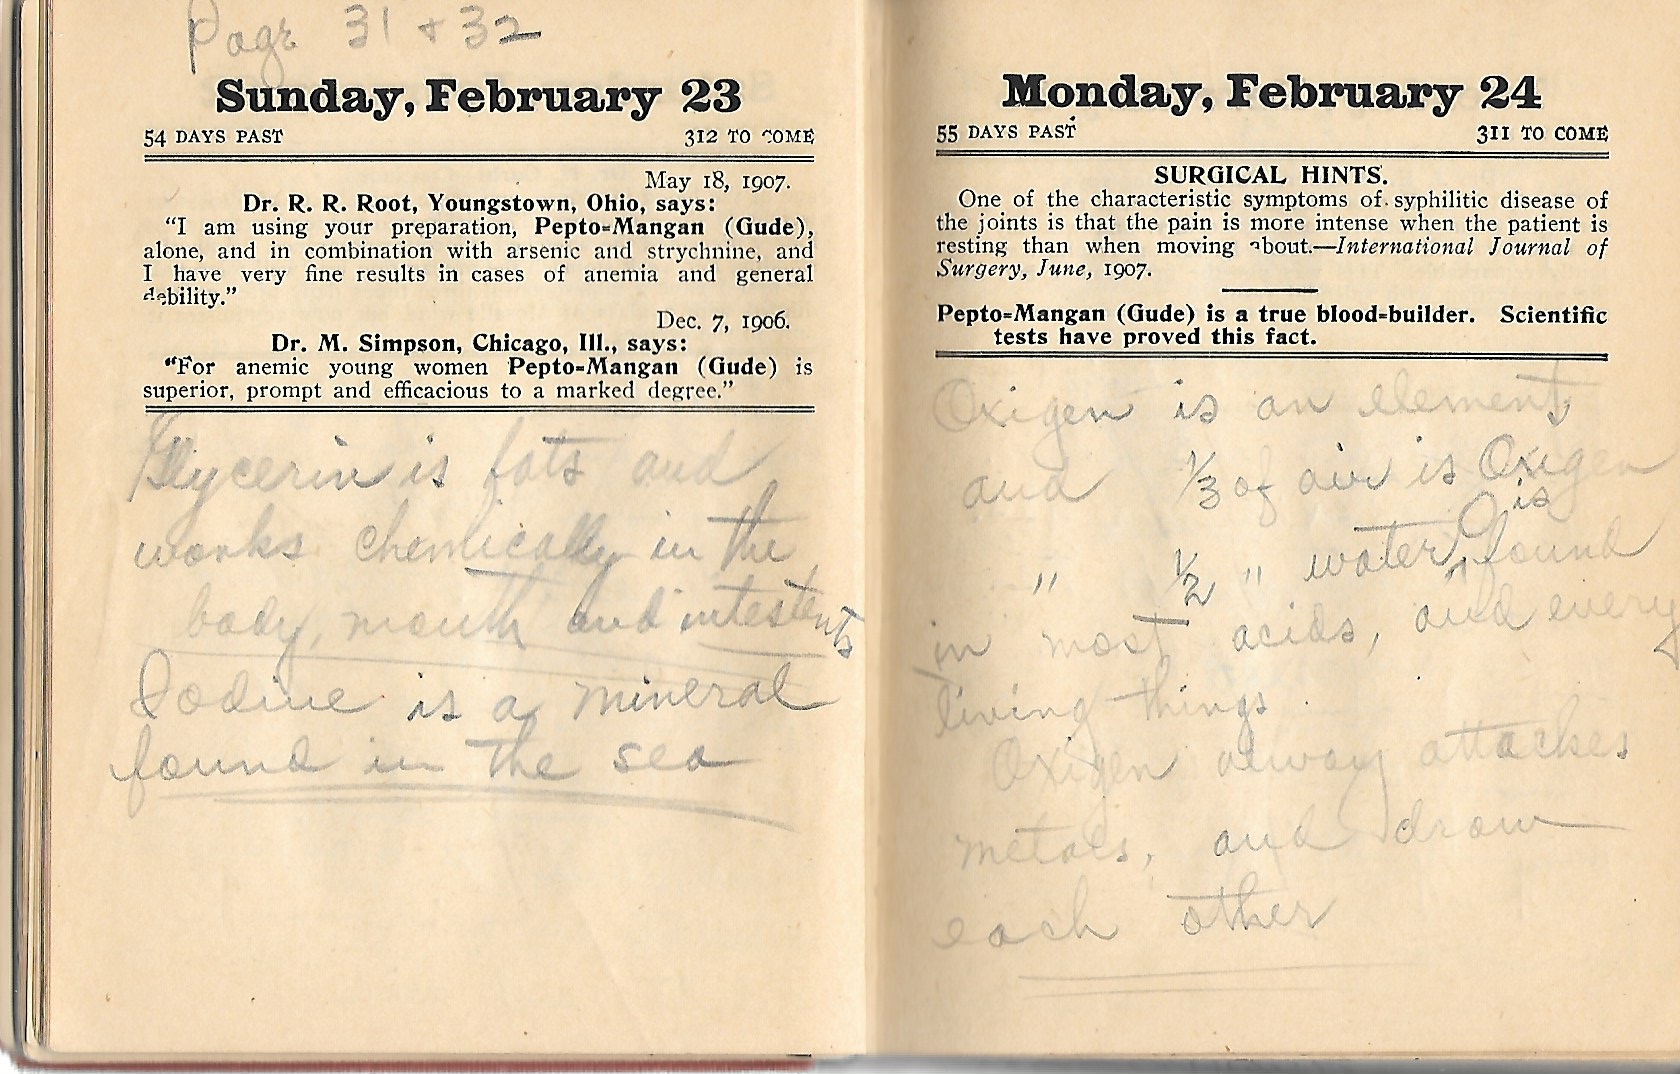 Page 31 + 32
Sunday, February 23
54 DAYS PAST 312 TO COME
May 18, 1907.
Dr. R. R. Root, Youngstown, Ohio, says:
"I am using your preparation, Pepto-Mangan (Gude),
alone, and in combination with arsenic and strychnine, and
I have very fine results in cases of anemia and general
debility."
Dec. 7, 1906.
Dr. M. Simpson, Chicago, Ill., says:
"For anemic young women Pepto-Mangan (Gude) is
superior, prompt and efficacious to a marked degree."
Glycerin is fats and
works chemically in the
body, mouth and intestents
Iodine is a mineral
found in the sea
Monday, February 24
55 DAYS PAST 311 TO COME
SURGICAL HINTS.
One of the characteristic symptoms of syphilitic disease of
the joints is that the pain is more intense when the patient is
resting than when moving about.—International Journal of
Surgery, June, 1907.
Pepto-Mangan (Gude) is a true blood-builder. Scientific
tests have proved this fact.
Oxigen is an element
and 1/3 of air is Oxigen
is
" 1/2 " water, found
in most acids, and every
living things.
Oxigen alway attaches
metals, and draw
each other